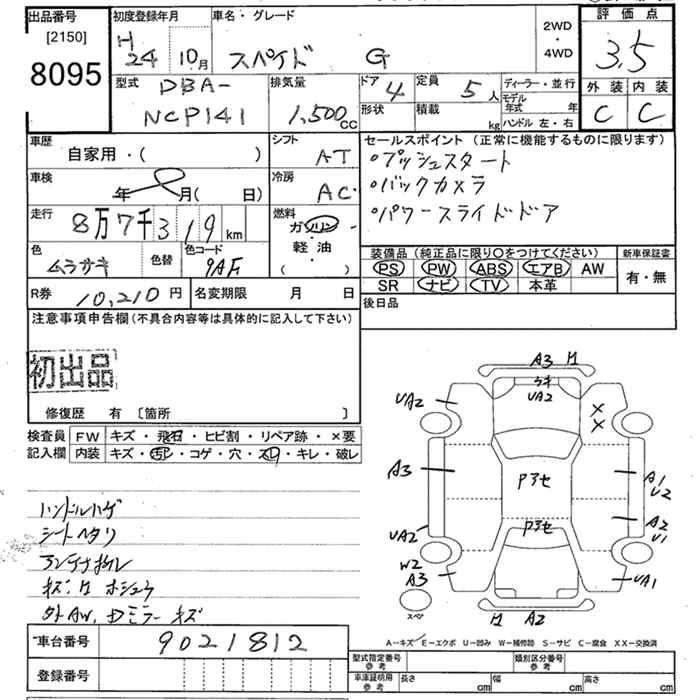 出品番号
[2150]
8095
初度登録年月
H
24 10月
車名・グレード
スペイド G
2WD
・
4WD
評価点
3.5
外装 内装
C C
型式
DBA-
NCP141
排気量
1,500cc
ドア 4
形状
定員 5人
積載 kg
ディーラー・並行
モデル年式 年
ハンドル 左・右
車歴
自家用・( )
シフト
AT
車検
年 月( 日)
冷房
AC
走行
8万7千319km
燃料
ガソリン
軽・油
( )
色
ムラサキ
色替
色コード
9AF
R券 10,210円
名変期限 月 日
セールスポイント (正常に機能するものに限ります)
・プッシュスタート
・バックカメラ
・パワースライドドア
装備品 (純正品に限り○をつけてください)
PS PW ABS エアB AW
SR ナビ TV 本革
新車保証書
有・無
後日品
注意事項申告欄(不具合内容等は具体的に記入して下さい)
初出品
修復歴 有 〔箇所 〕
検査員記入欄
FW キズ・飛石・ヒビ割・リペア跡・×要
内装 キズ・汚レ・コゲ・穴・スレ・キレ・破レ
ハンドルハゲ
シートヘタリ
キズ・
外AW、Dミラーキズ
車台番号 9021812
登録番号
A3
UA2
UA2
××
A3
Pアセ
A1
U2
Pアセ
A2
U1
UA2
W2
A3
UA1
スペア
A2
A－キズ E－エクボ U－凹み W－補修跡 S－サビ C－腐食 XX－交換済
型式指定番号
参考
類別区分番号
参考
車庫証明用
参考
長さ cm 幅 cm 高さ cm